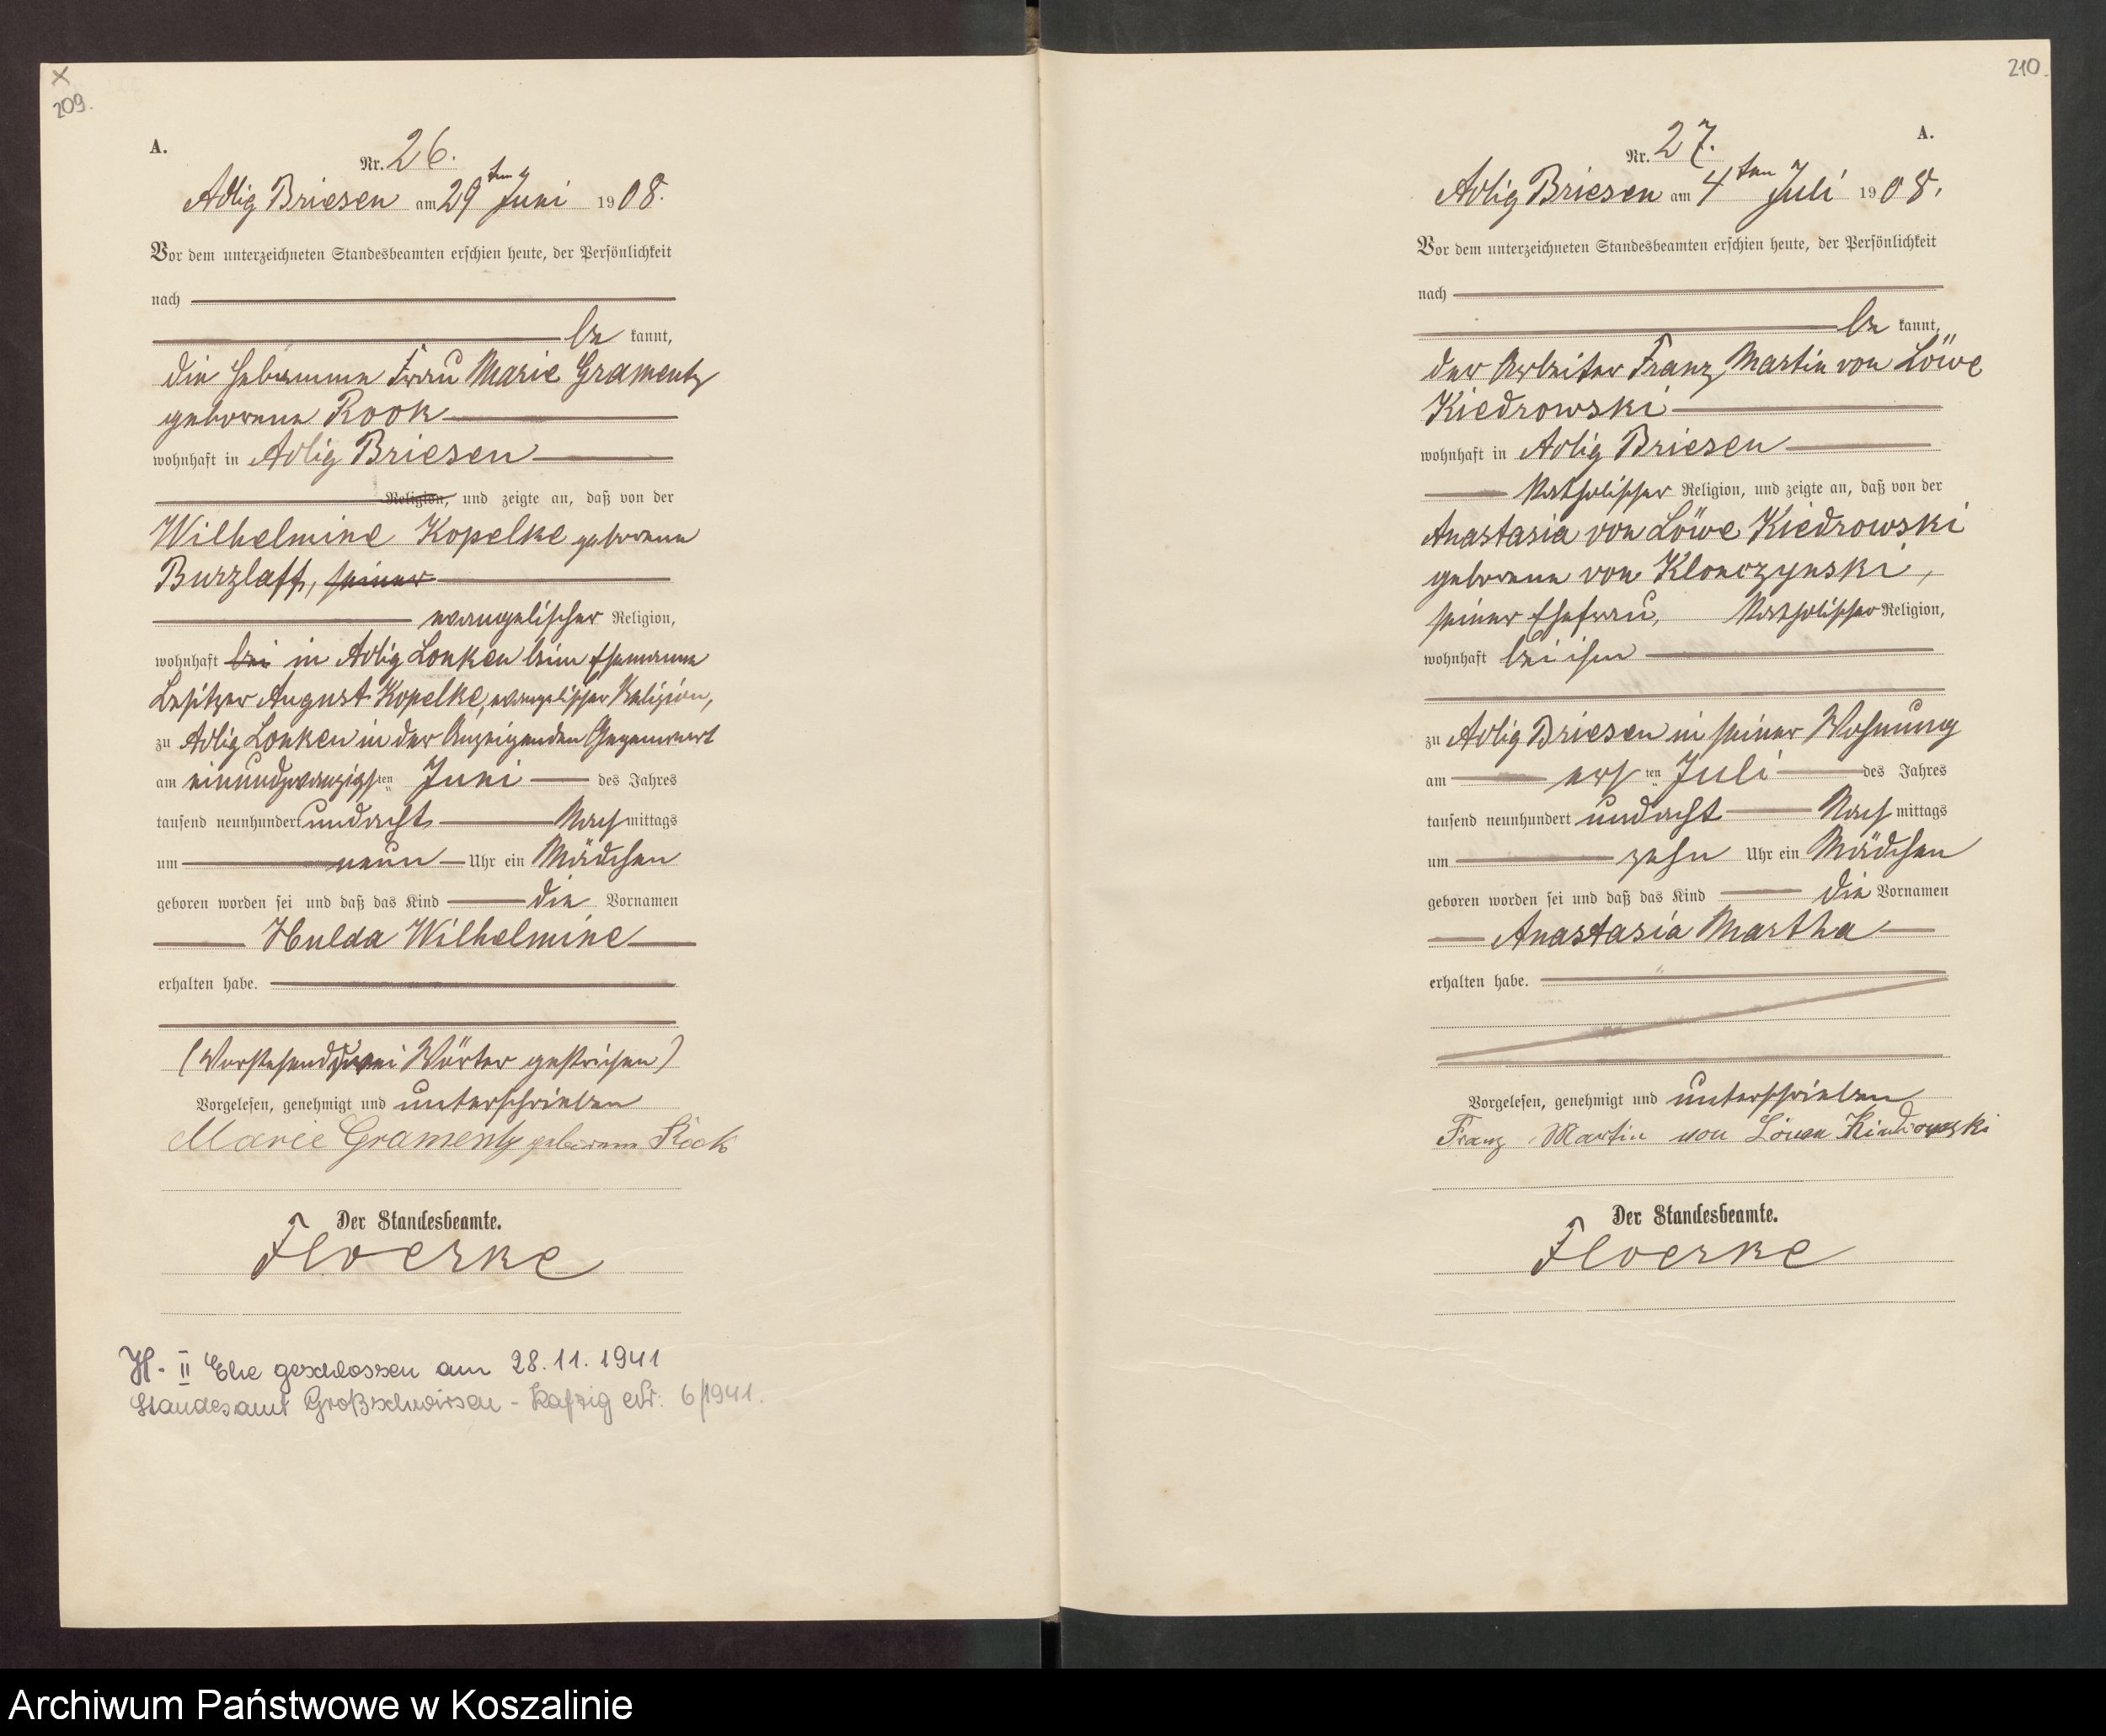 X
209.
A.
Nr. 26.
Adlig Briesen am 29ten Juni 1908.
Vor dem unterzeichneten Standesbeamten erschien heute, der Persönlichkeit
nach
be kannt,
die Hebamme Frau Marie Gramentz
geborene Rook
wohnhaft in Adlig Briesen
Religion, und zeigte an, daß von der
Wilhelmine Kopelke geborene
Burzlaff, seiner
evangelischer Religion,
wohnhaft bei in Adlig Lonken beim Ehemanne
Besitzer August Kopelke, evangelischer Religion,
zu Adlig Lonken in der Anzeigenden Gegenwart
am einundzwanzigsten Juni des Jahres
tausend neunhundert undacht Nach mittags
um neun Uhr ein Mädchen
geboren worden sei und daß das Kind die Vornamen
Hulda Wilhelmine
erhalten habe.
(Vorstehend zwei Wörter gestrichen)
Vorgelesen, genehmigt und unterschrieben
Marie Gramentz geborene Rook
Der Standesbeamte.
Floerke
H. II Ehe geschlossen am 28.11.1941
Standesamt Großschwirsen - Kafzig Nr: 6/1941.
210.
A.
Nr. 27.
Adlig Briesen am 4ten Juli 1908.
Vor dem unterzeichneten Standesbeamten erschien heute, der Persönlichkeit
nach
be kannt,
der Arbeiter Franz Martin von Löwe
Kiedrowski
wohnhaft in Adlig Briesen
katholischer Religion, und zeigte an, daß von der
Anastasia von Löwe Kiedrowski
geborene von Klonczynski,
seiner Ehefrau, katholischer Religion,
wohnhaft bei ihm
zu Adlig Briesen in seiner Wohnung
am ersten Juli des Jahres
tausend neunhundert undacht Nach mittags
um zehn Uhr ein Mädchen
geboren worden sei und daß das Kind die Vornamen
Anastasia Martha
erhalten habe.
Vorgelesen, genehmigt und unterschrieben
Franz Martin von Löwe Kiedrowski
Der Standesbeamte.
Floerke
Archiwum Państwowe w Koszalinie